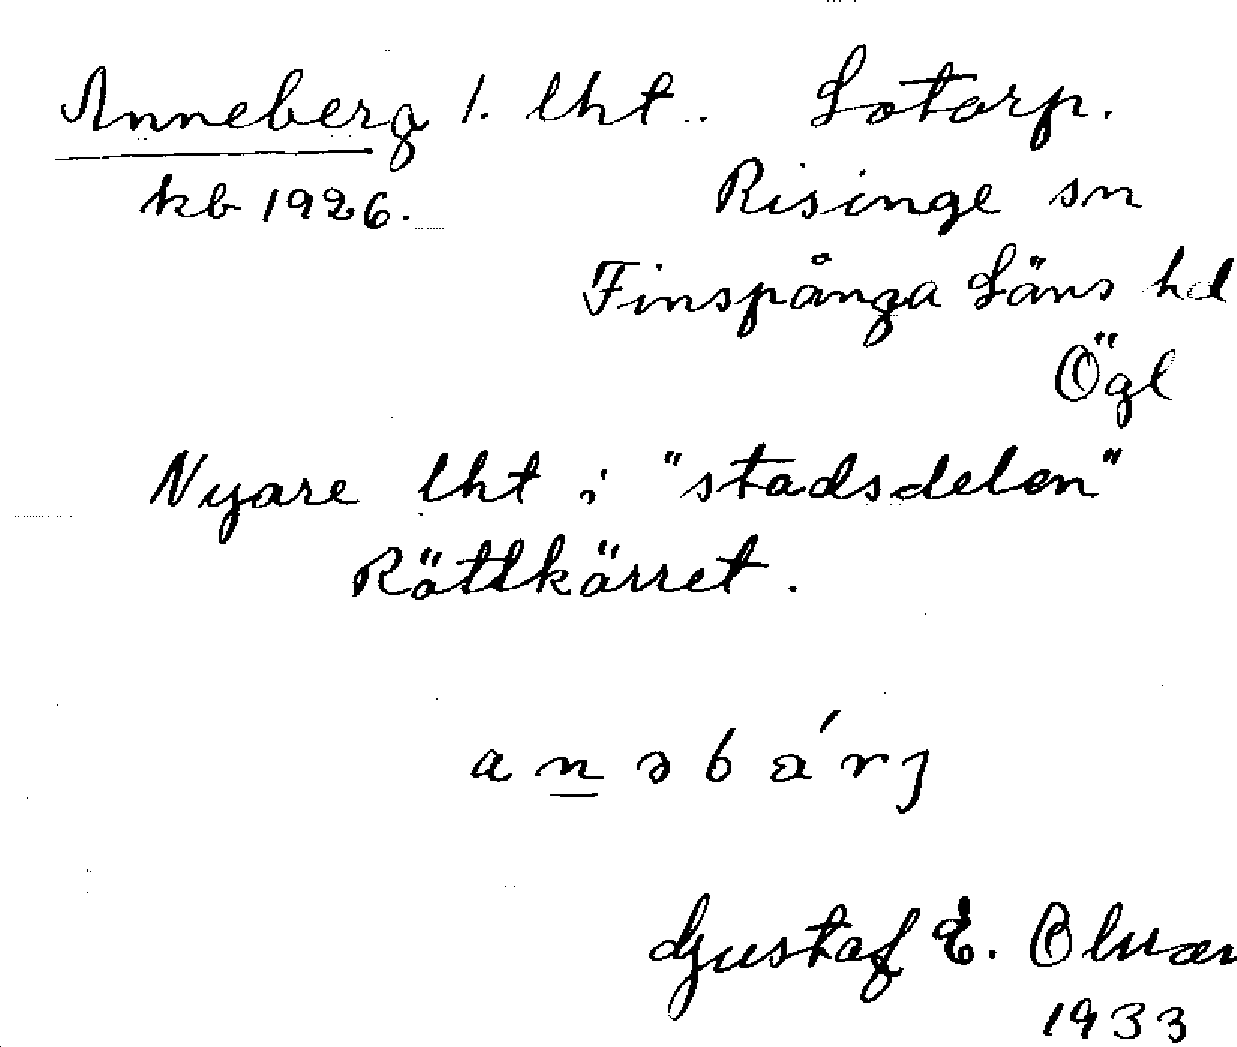 Anneberg 1. lht.. Lotorp.
kb 1926. Risinge sn
Finspånga Läns hd
Ögl
Nyare lht i "stadsdelen"
Röttkärret.
a n ə b á r j
Gustaf E.
1933